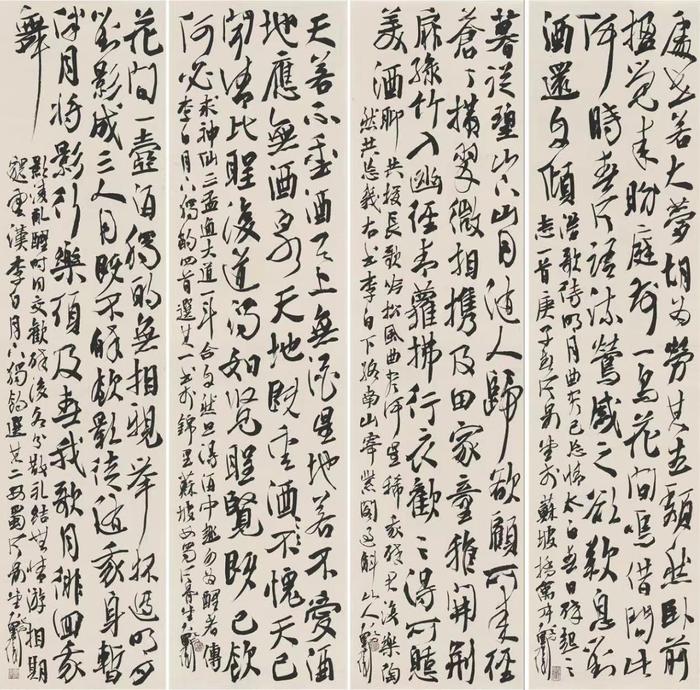 處世若大夢胡為勞其生頹然臥前
楹覺來盼庭前一鳥花間鳴借問此
何時春風語流鶯感之欲歎息對
酒還自傾
浩歌待明月曲尽已忘情太白春日醉起言
志一首庚子春
暮從碧山下山月隨人歸卻顧所來徑
蒼蒼橫翠微相攜及田家童稚開荊
扉綠竹入幽徑青蘿拂行衣歡言得所憩
美酒聊
共揮長歌吟松風曲尽河星稀我醉君復樂陶
然共忘機右書李白下終南山
天若不愛酒天上無酒星地若不愛酒
地應無酒泉天地既愛酒不愧天已
聞清比聖復道濁如賢聖賢既已飲
何必
求神仙三盃通大道一斗合自然但得酒中趣勿為醒者傳
李白月下獨酌四首選其一
花間一壺酒獨酌無相親舉杯邀明月
對影成三人月既不解飲影徒隨我身暫
伴月將影行樂須及春我歌月徘徊我
舞
影凌亂醒時同交歡醉後各分散永結無情游相期
邈雲漢李白月下獨酌選其二